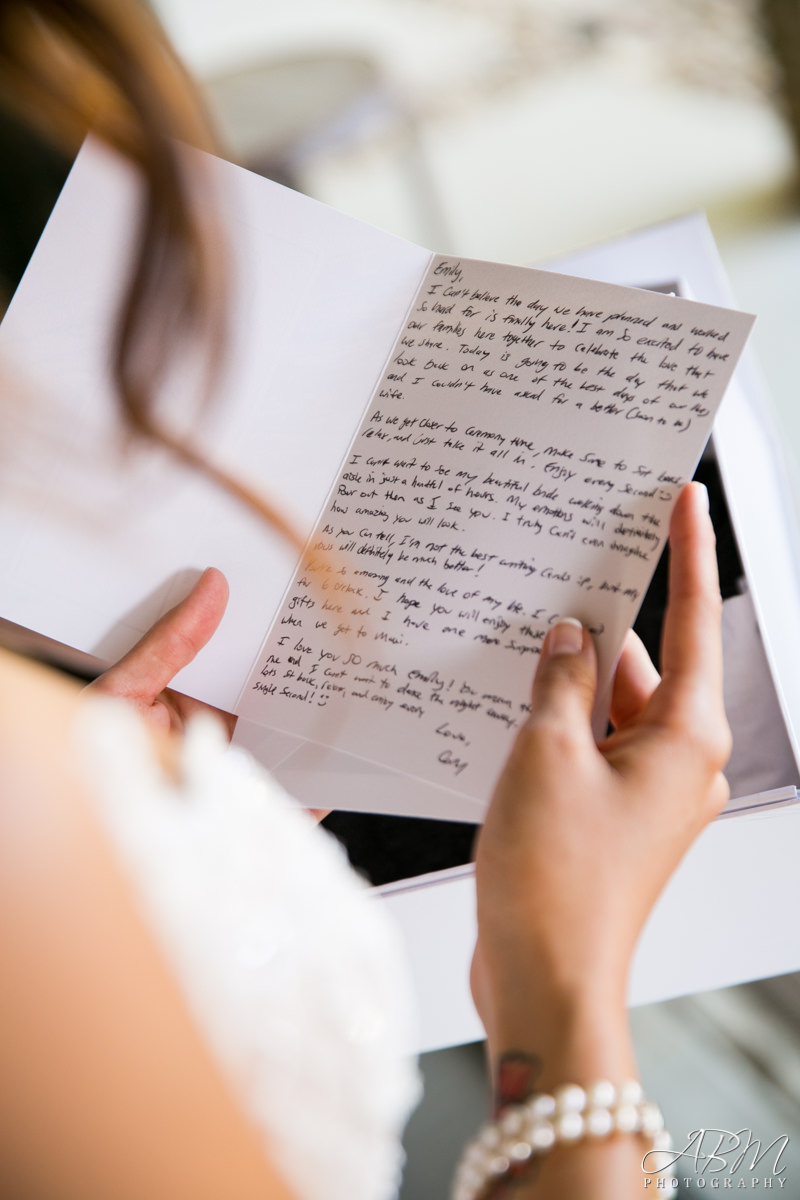 Emily,
I can't believe the day we have planned and worked
so hard for is finally here! I am so excited to have
our families here together to celebrate the love that
we share. Today is going to be the day that we
look back on as one of the best days of our lives
and I couldn't have asked for a better (soon to be)
wife.
As we get closer to ceremony time, make sure to sit back,
relax, and just take it all in. Enjoy every second :)
I can't wait to see my beautiful bride walking down the
aisle in just a handful of hours. My emotions will definitely
pour out then as I see you. I truly can't even imagine
how amazing you will look.
As you can tell, I'm not the best writing cards :P, but my
vows will definitely be much better!
so amazing and the love of my life. I
for 6 o'clock. I hope you will enjoy these
gifts here and I have one more surprise
when we get to Maui.
I love you SO much Emily! You mean the
me and I can't wait to dance the night away.
lots sit back, relax, and enjoy every
single second! :)
Love,
Cory
ABM
PHOTOGRAPHY